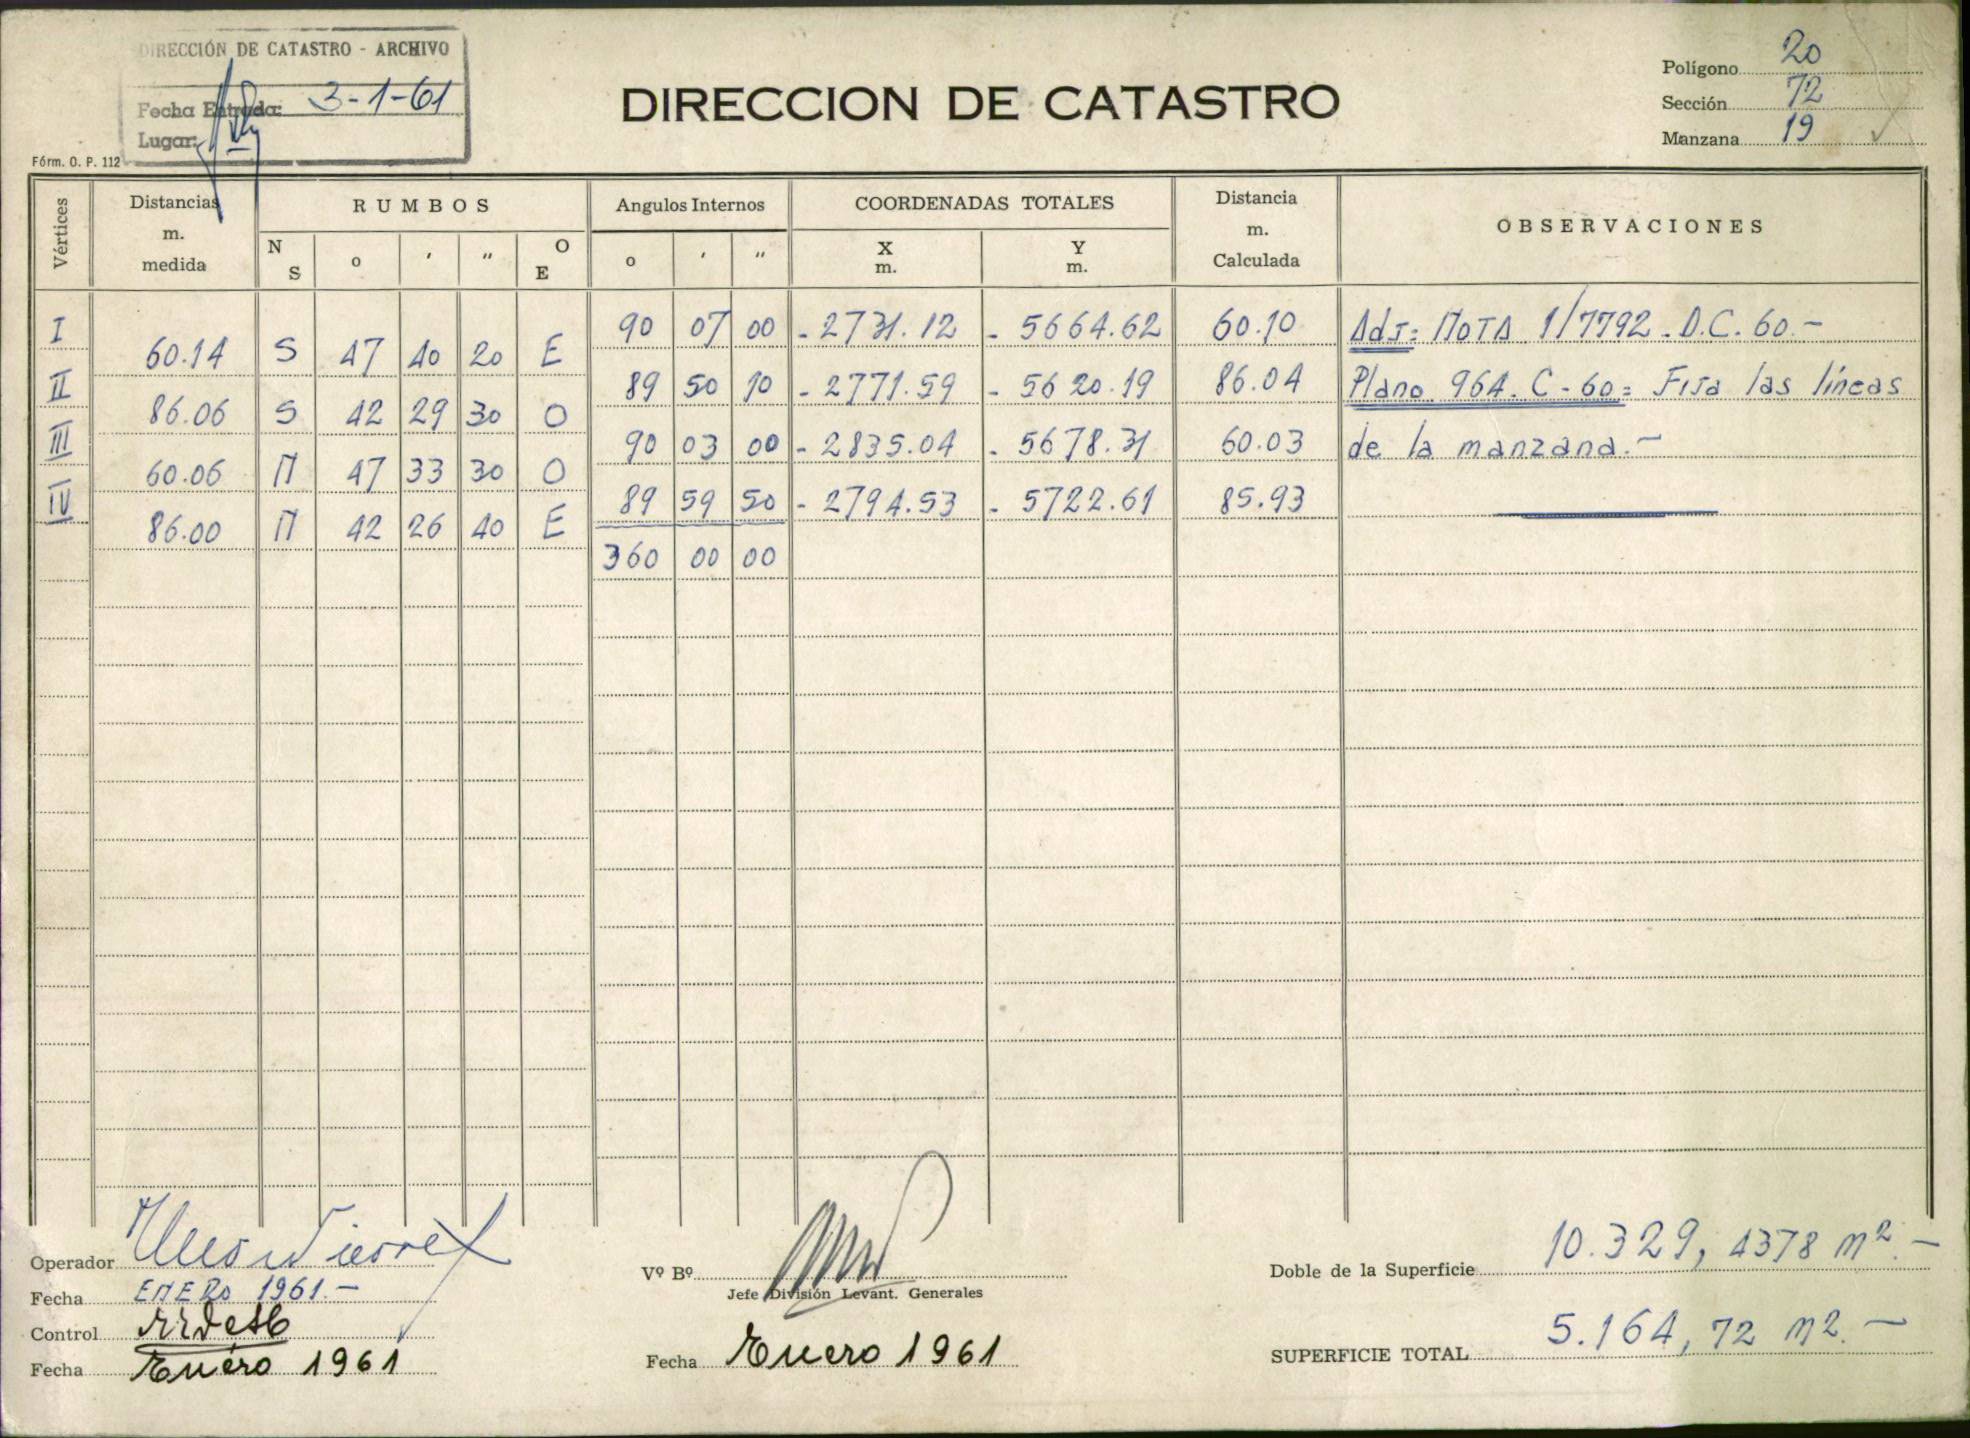 DIRECCIÓN DE CATASTRO - ARCHIVO
Fecha Entrada: 3-1-61
Lugar:
Fórm. O. P. 112
DIRECCION DE CATASTRO
Polígono 20
Sección 72
Manzana 19
Vértices
Distancias m. medida
RUMBOS
N S o ' " O E
Angulos Internos
o ' "
COORDENADAS TOTALES
X m. Y m.
Distancia m. Calculada
OBSERVACIONES
I 90 07 00 -2731.12 -5664.62 60.10 Adj: NOTA 1/7792-D.C.60.-
60.14 S 47 40 20 E
II 89 50 10 -2771.59 -5620.19 86.04 Plano 964.C-60: Fija las líneas
86.06 S 42 29 30 O
III 90 03 00 -2835.04 -5678.31 60.03 de la manzana.-
60.06 N 47 33 30 O
IV 89 59 50 -2794.53 -5722.61 85.93
86.00 N 42 26 40 E
360 00 00
Operador
Fecha ENERO 1961.-
Control
Fecha Enero 1961
Vº Bº
Jefe División Levant. Generales
Fecha Enero 1961
Doble de la Superficie 10.329,4378 m2.-
SUPERFICIE TOTAL 5.164,72 m2.-